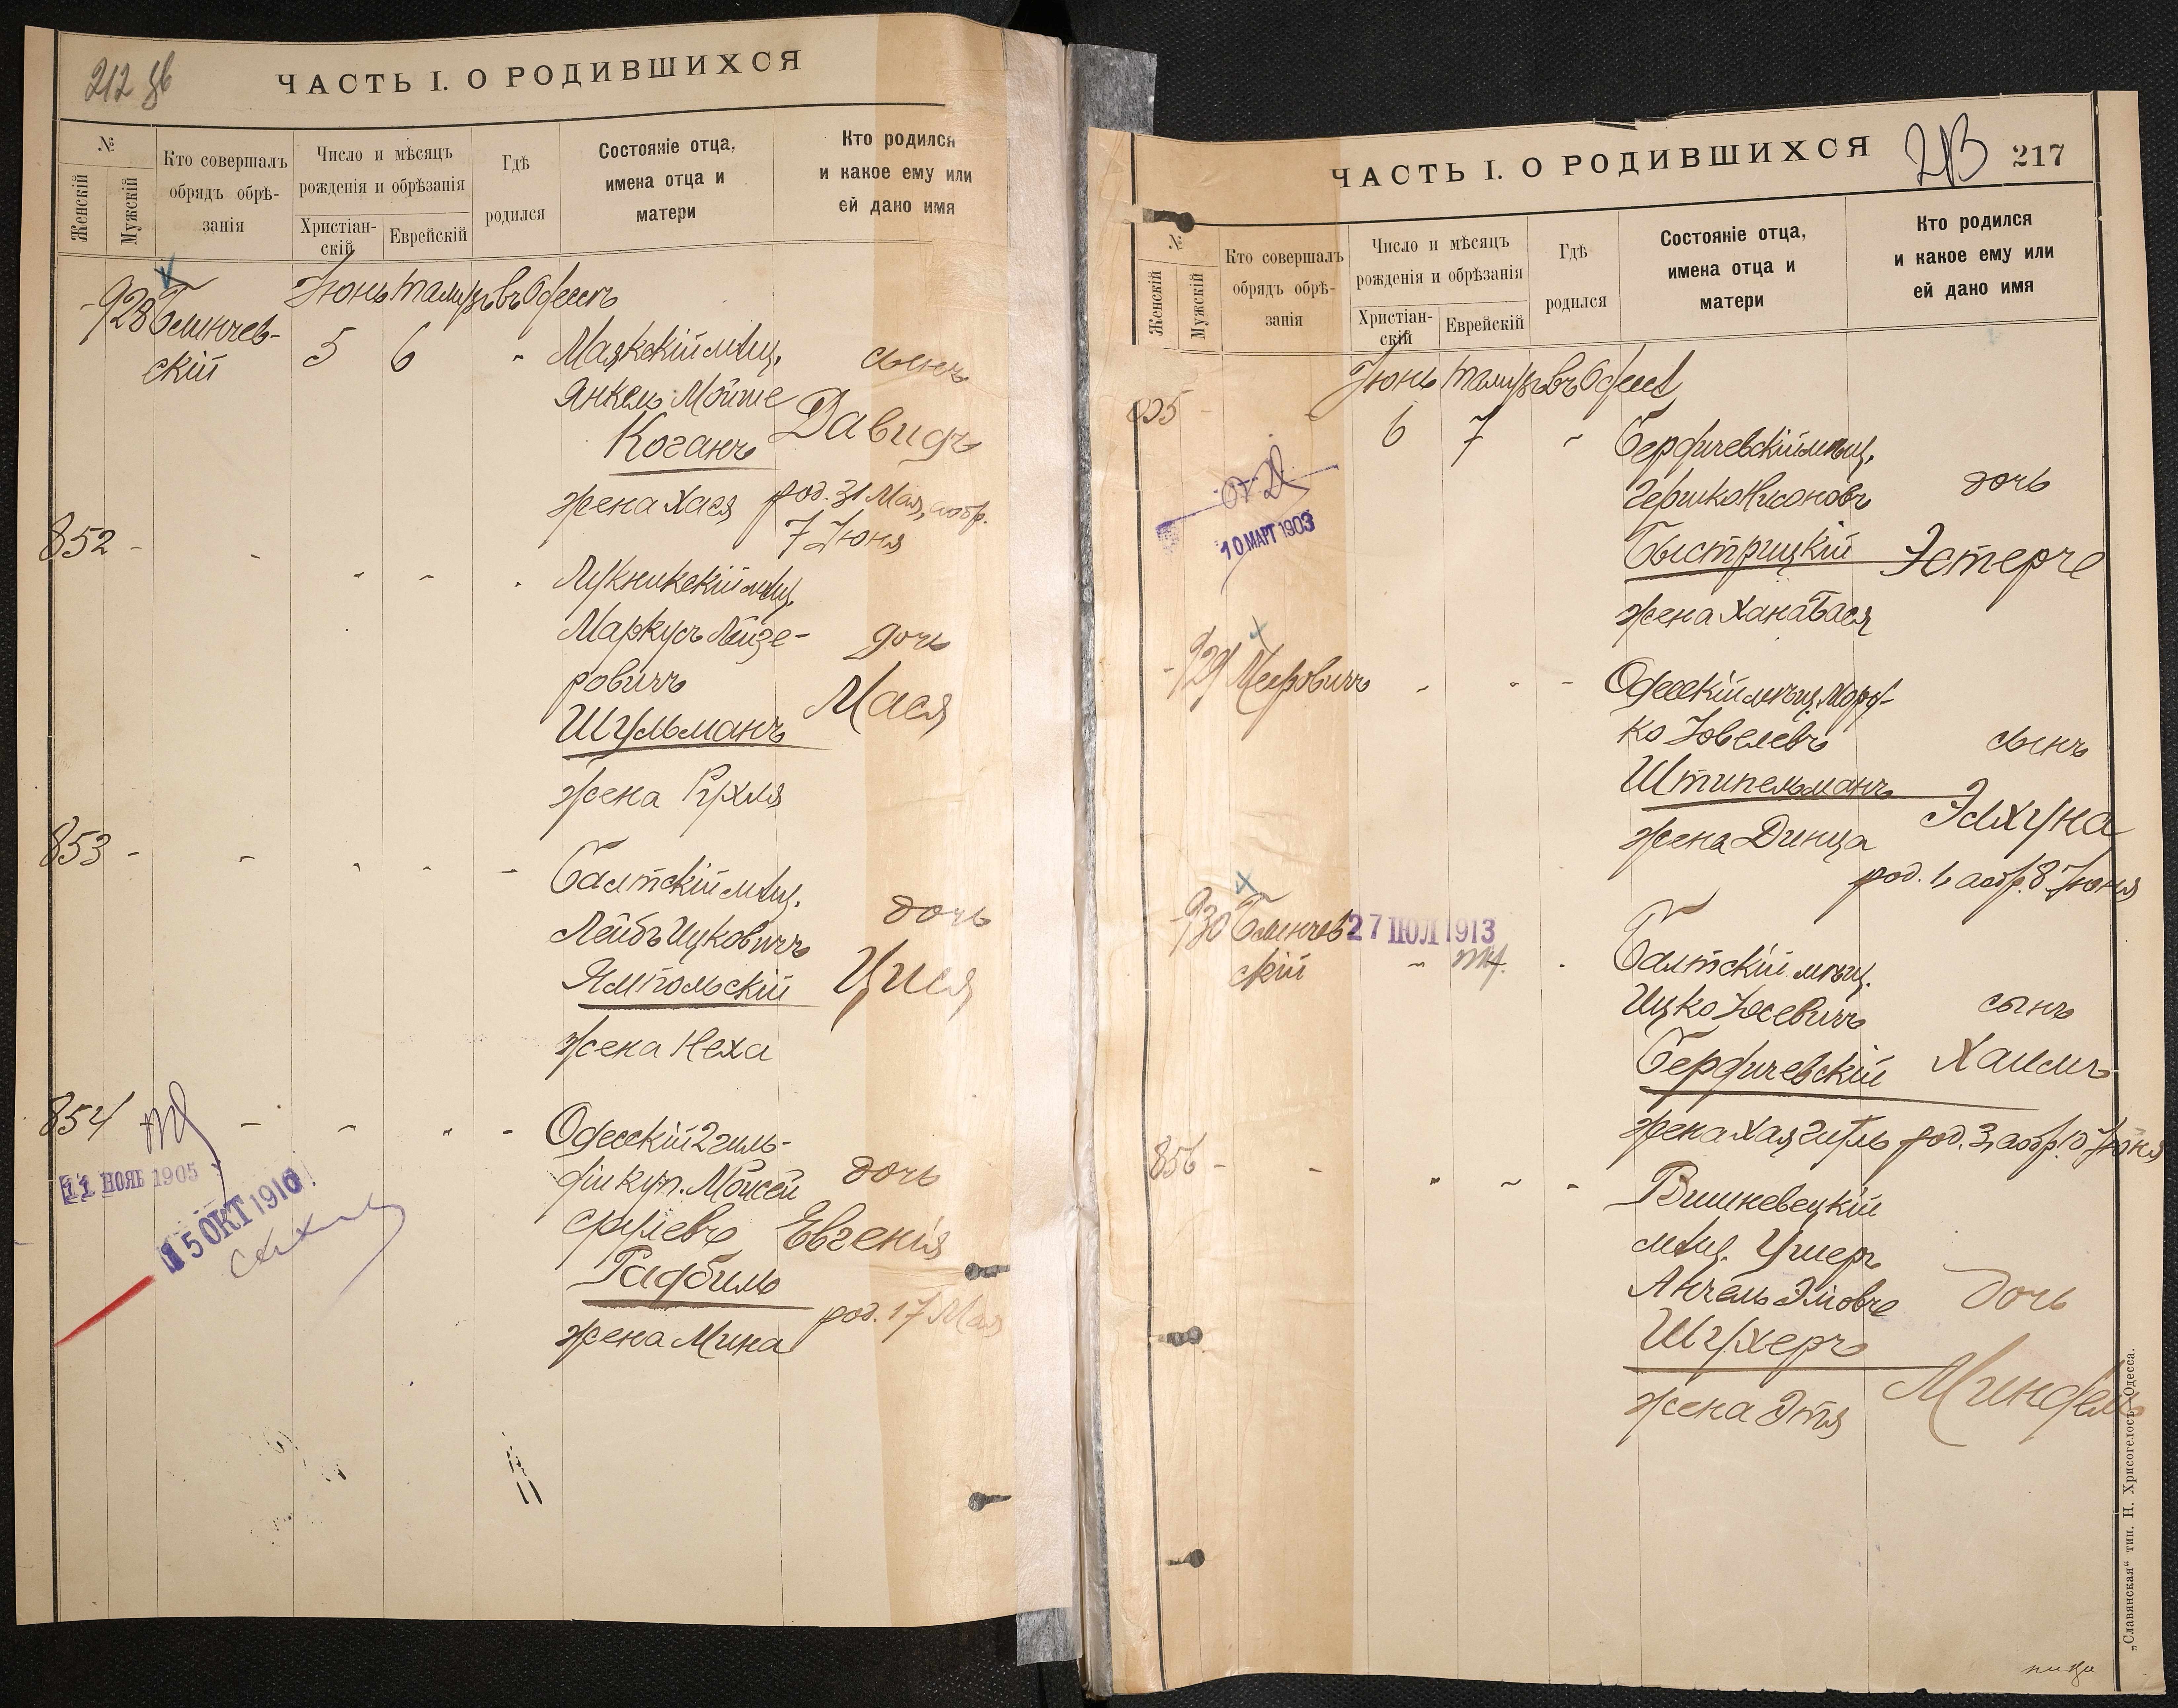 212 об
ЧАСТЬ I. О РОДИВШИХСЯ
№
Женскій
Мужскій
Кто совершалъ
обрядъ обрѣ-
занія
Число и мѣсяцъ
рожденія и обрѣзанія
Христіан-
скій
Еврейскій
Гдѣ
родился
Состояніе отца,
имена отца и
матери
Кто родился
и какое ему или
ей дано имя
Іюнь тамузъ въ Одессѣ
928 Блинчев-
скій
5 6 " Маякскій мѣщ.
Янкель Мойше
Коганъ
жена Хася
сынъ
Давидъ
род. 31 Мая, а обр.
7 Іюня
852 - " " " " Лукникскій мѣщ.
Маркусъ Лейзе-
ровичъ
Шульманъ
жена Рухля
дочь
Мася
853 - " " " " Балтскій мѣщ.
Лейбъ Ицковичъ
Ямпольскій
жена Неха
дочь
Цися
854 " " " " Одесскій 2 гиль-
діи куп. Мойсей
Сруліевъ
Радбиль
жена Мина
дочь
Евгенія
род. 17 Мая
11 НОЯБ 1905
15 ОКТ 1910
213 217
ЧАСТЬ I. О РОДИВШИХСЯ
№
Женскій
Мужскій
Кто совершалъ
обрядъ обрѣ-
занія
Число и мѣсяцъ
рожденія и обрѣзанія
Христіан-
скій
Еврейскій
Гдѣ
родился
Состояніе отца,
имена отца и
матери
Кто родился
и какое ему или
ей дано имя
Іюнь тамузъ въ Одессѣ
855 -
6 7 " Бердичевскій мѣщ.
Гершко Нисоновъ
Быстрицкій
жена Хана Бася
дочь
Эстеръ
10 МАРТ 1903
929 Мееровичъ " " " Одесскій мѣщ. Морд-
ко Іовелевъ
Штипельманъ
жена Динца
сынъ
Элхуна
род. 1, а обр. 8 Іюня
930 Блинчев
скій
27 ІЮЛ 1913
" " Балтскій мѣщ.
Ицко Іосевичъ
Бердичевскій
жена Хая Гитль
сынъ
Хаимъ
род. 3, а обр. 10 Іюня
856 - " " " " Вишневецкій
мѣщ. Ушеръ
Анчель Эліовъ
Шухеръ
жена Этя
дочь
Миндель
„Славянская“ тип. Н. Хрисогелосъ—Одесса.